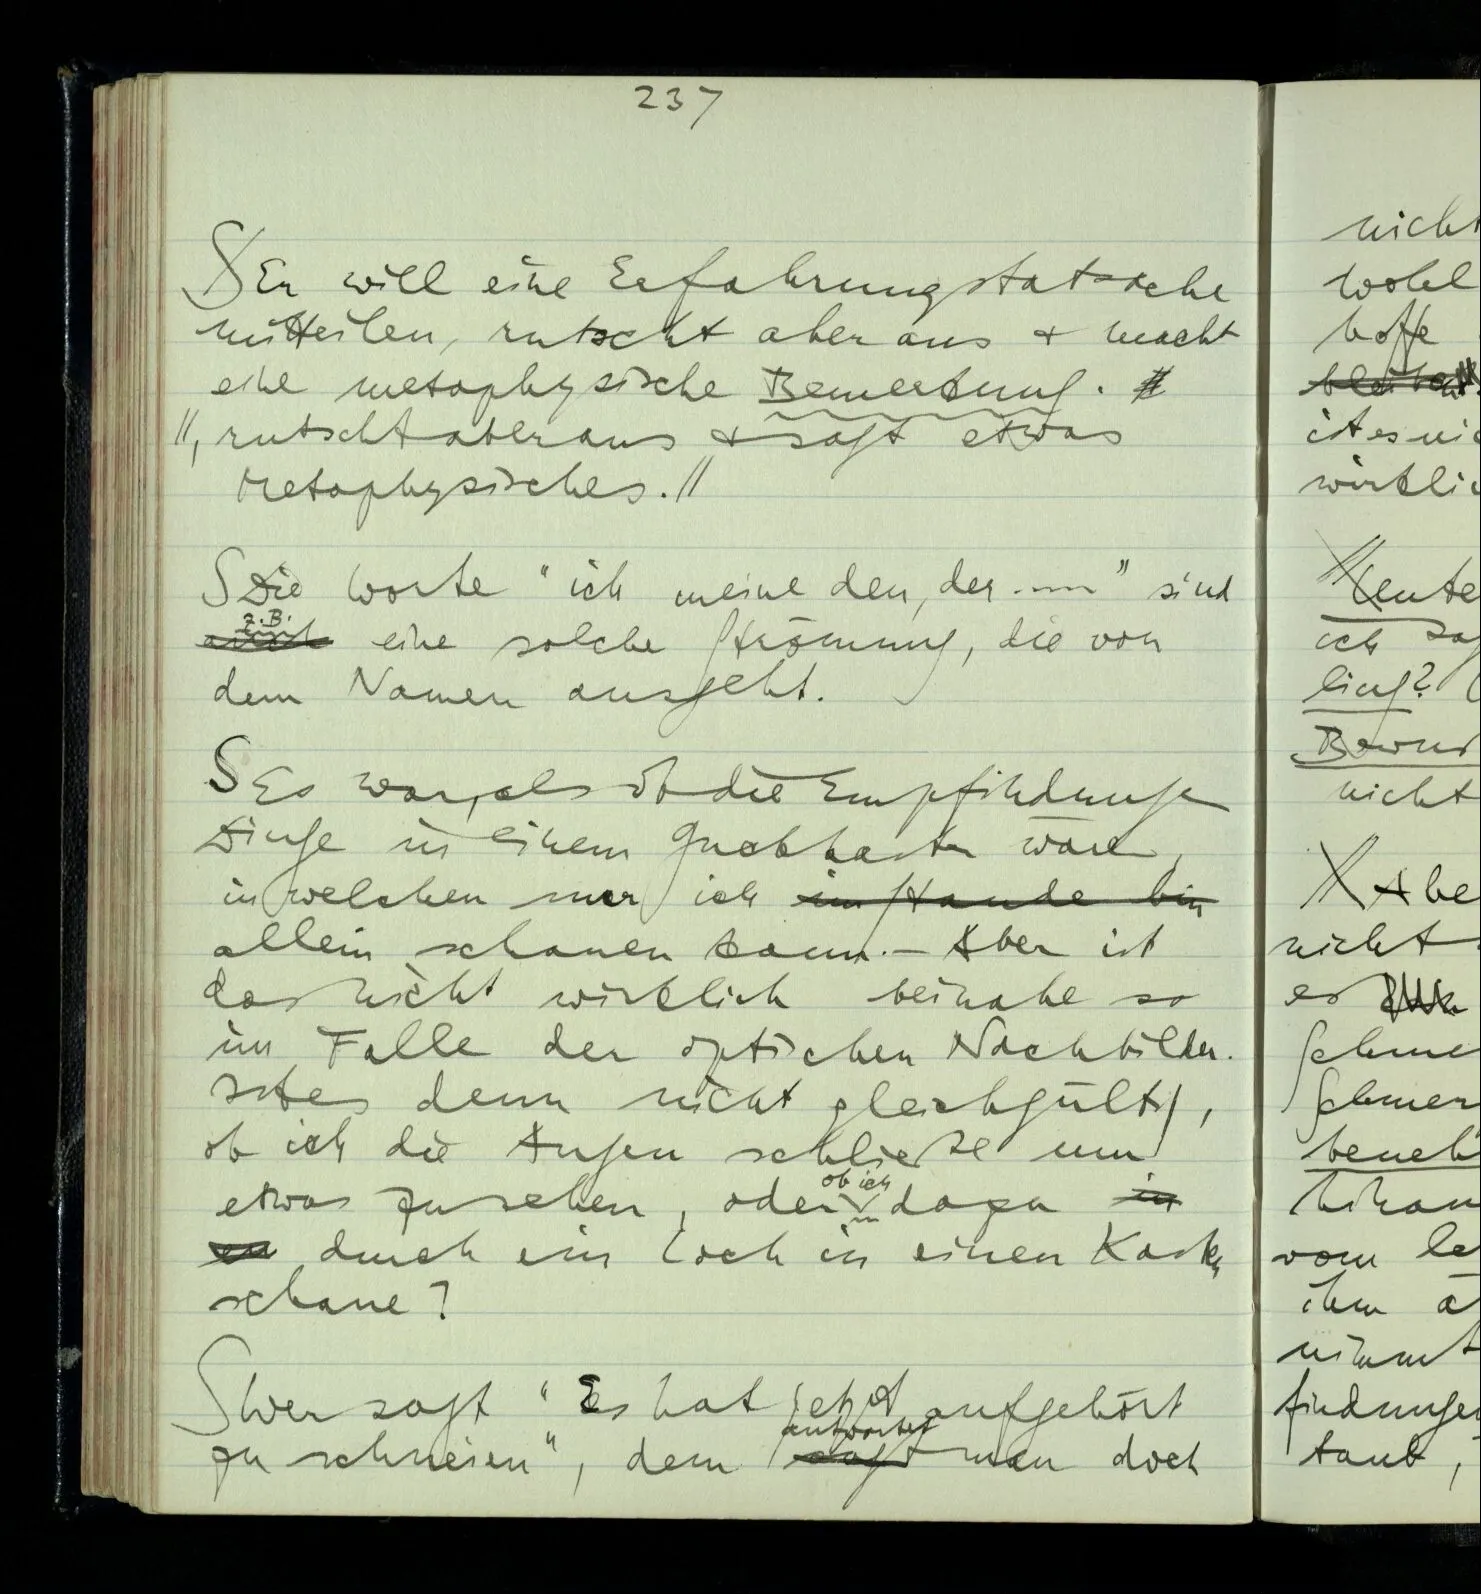 237
S Er will eine Erfahrungstatsache
mitteilen, rutscht aber aus + macht
eine metaphysische Bemerkung.
//, rutscht aber aus + sagt etwas
Metaphysisches.//
S Die Worte "ich meine den, der ....." sind
z.B.
auch eine solche Strömung, die von
dem Namen ausgeht.
S Es war, als ob die Empfindungen
Dinge in einem Guckkasten wären,
in welchen nur ich im Stande bin
allein schauen kann. – Aber ist
das nicht wirklich beinahe so
im Falle der optischen Nachbilder.
Ist es denn nicht gleichgültig,
ob ich die Augen schließe um
ob ich
etwas zu sehen, oder dazu in
durch ein Loch in einen Kasten
schaue?
S Wer sagt "Es hat jetzt aufgehört
antwortet
zu schneien", dem sagt man doch
nicht
wohl
hoffe
ist es nic
wirklic
Heute
ich sag
ling?
Bewus
nicht
Abe
nicht
es
Schme
Schmer
beneh
hinau
vom le
ihm
nimmt
findungen
taub,